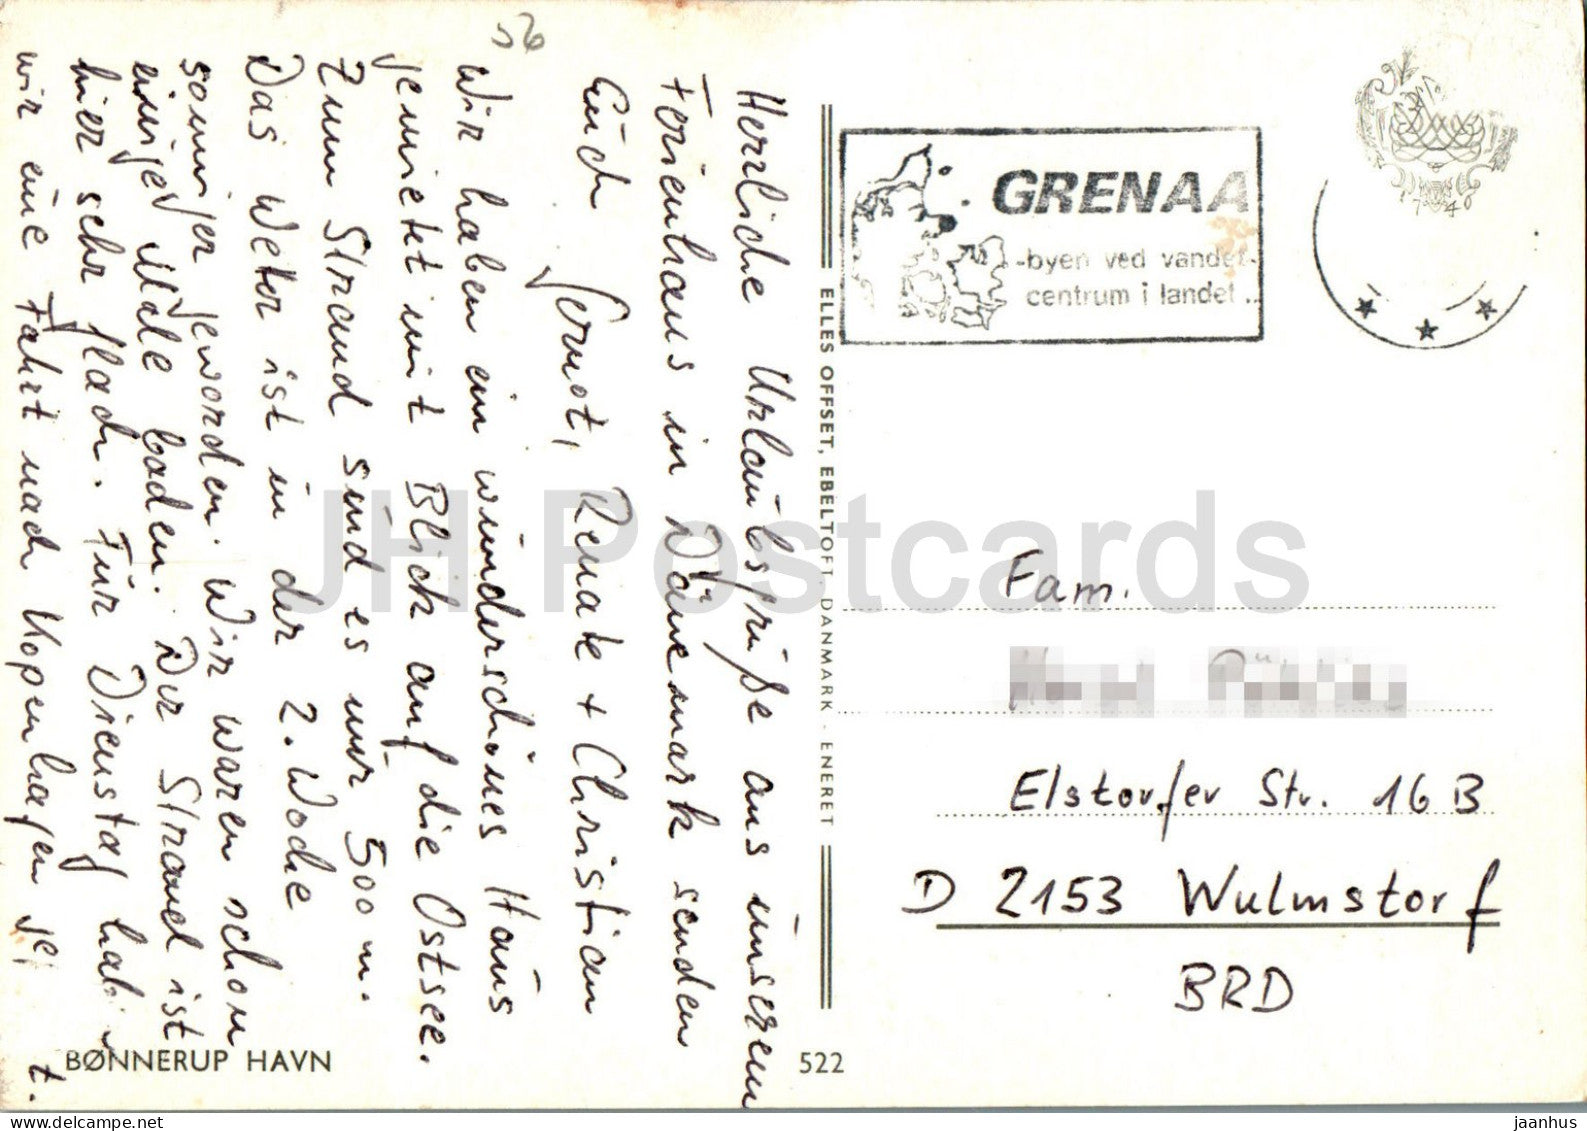 56
Herrliche Urlaubsgrüße aus unserem
Ferienhaus in Dänemark senden
Euch Gernot, Renate + Christian
Wir haben ein wunderschönes Haus
gemietet mit Blick auf die Ostsee.
Zum Strand sind es nur 500 m.
Das Wetter ist in der 2. Woche
sonniger geworden. Wir waren schon
einige Male baden. Der Strand ist
hier sehr flach. Für Dienstag haben
wir eine Fahrt nach Kopenhagen
BØNNERUP HAVN
522
ELLES OFFSET, EBELTOFT, DANMARK · ENERET
GRENAA
-byen ved vandet-
centrum i landet...
1746
Fam.
Elstorfer Str. 16 B
D 2153 Wulmstorf
BRD
JH Postcards
jaanhus